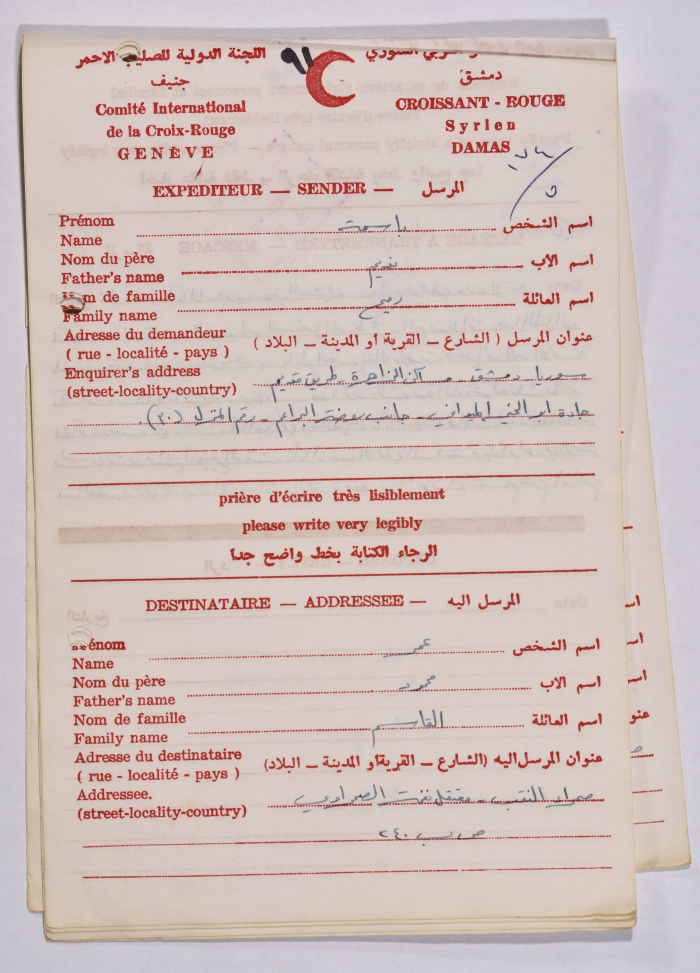 اللجنة الدولية للصليب الاحمر
جنيف
Comité International
de la Croix-Rouge
GENÈVE
٩١
دمشق
CROISSANT - ROUGE
Syrien
DAMAS
EXPÉDITEUR — SENDER — المرسل
Prénom
Name
باسمة
اسم الشخص
Nom du père
Father's name
نعيم
اسم الاب
Nom de famille
Family name
اسم العائلة
Adresse du demandeur
( rue - localité - pays )
عنوان المرسل ( الشارع ــ القرية او المدينة ــ البلاد )
Enquirer's address
(street-locality-country)
سوريا دمشق - مساكن الزاهرة - طريق قديم
جادة ابو الحسن الميداني - جانب روضة البراعم - رقم المنزل (٣٠).
prière d'écrire très lisiblement
please write very legibly
الرجاء الكتابة بخط واضح جدا
DESTINATAIRE — ADDRESSEE — المرسل اليه
Prénom
Name
عمر
اسم الشخص
Nom du père
Father's name
محمود
اسم الاب
Nom de famille
Family name
القاسم
اسم العائلة
Adresse du destinataire
( rue - localité - pays )
عنوان المرسل اليه (الشارع ــ القرية او المدينة ــ البلاد)
Addressee.
(street-locality-country)
صحراء النقب - معتقل نفحة الصحراوي
ص.ب ٢٤٠